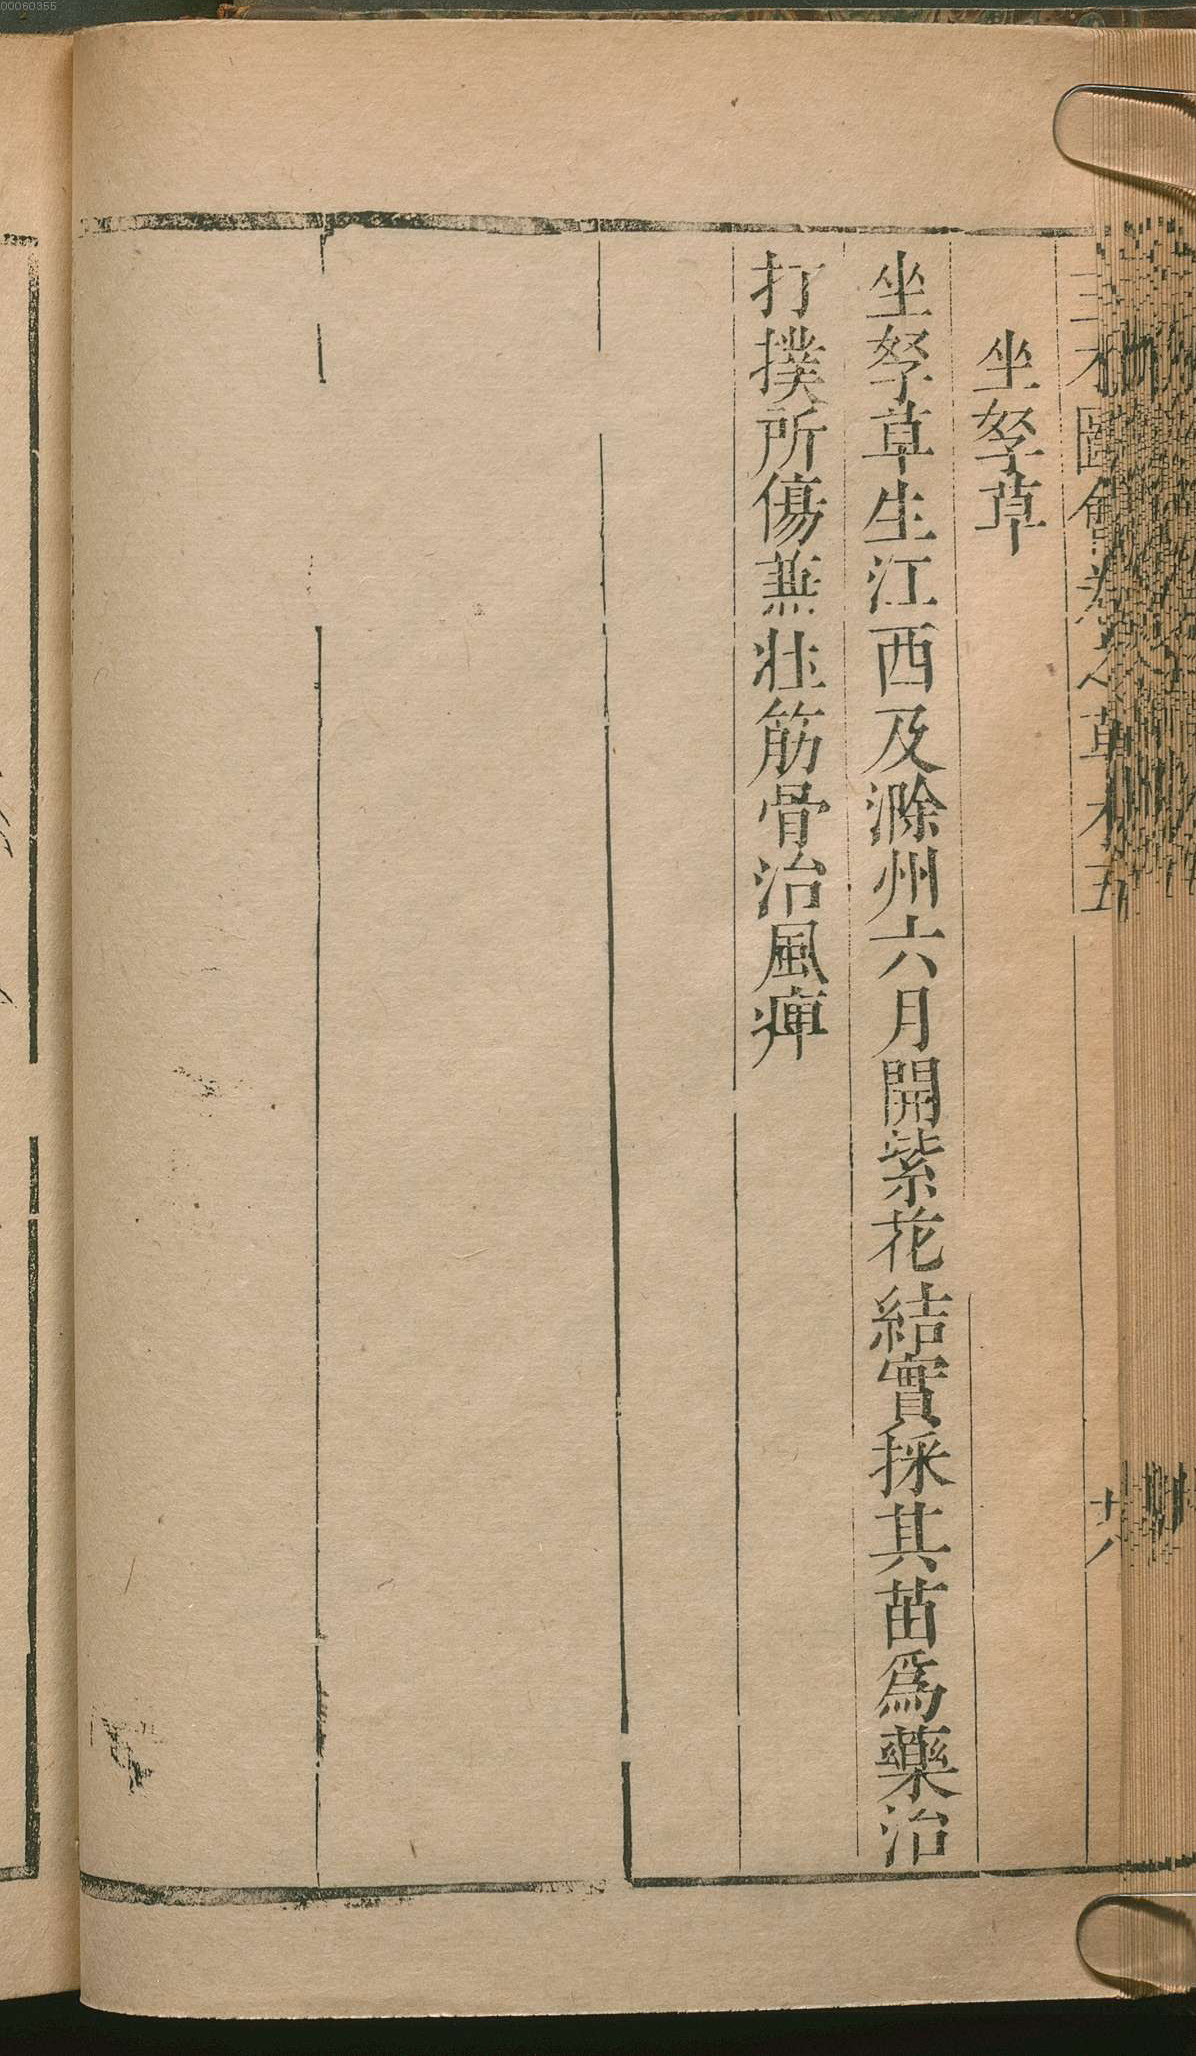 00060355
三才圖會卷之草木五 十八
坐孥草
坐孥草生江西及滁州六月開紫花結實採其苗爲藥治
打撲所傷兼壯筋骨治風痺